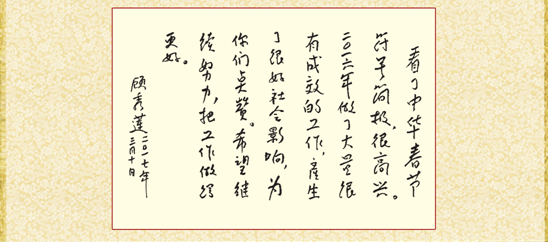 看了中华春节
符号简报，很高兴。
二〇一六年做了大量很
有成效的工作，产生
了很好社会影响，为
你们点赞。希望继
续努力，把工作做得
更好。
顾秀莲二〇一七年
三月十日